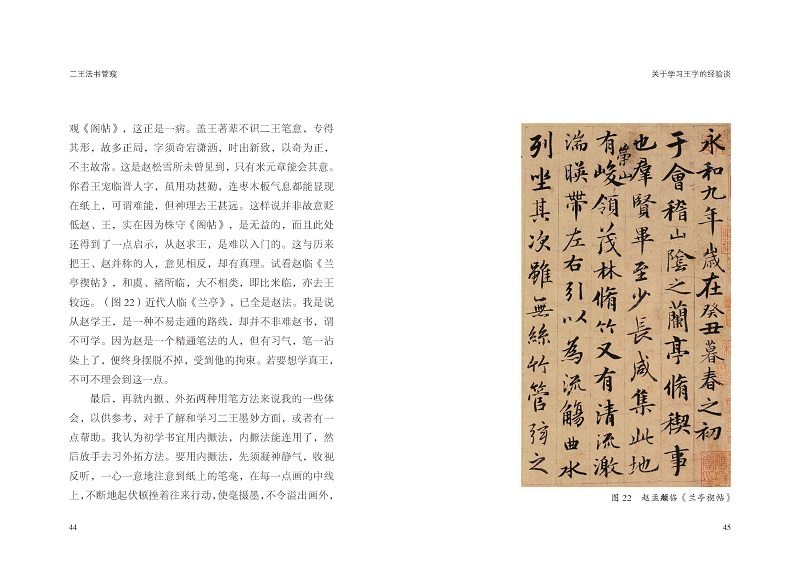 二王法书管窥
观《阁帖》，这正是一病。盖王著辈不识二王笔意，专得
其形，故多正局，字须奇宕潇洒，时出新致，以奇为正，
不主故常。这是赵松雪所未曾见到，只有米元章能会其意。
你看王宠临晋人字，虽用功甚勤，连枣木板气息都能显现
在纸上，可谓难能，但神理去王甚远。这样说并非故意贬
低赵、王，实在因为株守《阁帖》，是无益的，而且此处
还得到了一点启示，从赵求王，是难以入门的。这与历来
把王、赵并称的人，意见相反，却有真理。试看赵临《兰
亭禊帖》，和虞、褚所临，大不相类，即比米临，亦去王
较远。（图 22）近代人临《兰亭》，已全是赵法。我是说
从赵学王，是一种不易走通的路线，却并不非难赵书，谓
不可学。因为赵是一个精通笔法的人，但有习气，笔一沾
染上了，便终身摆脱不掉，受到他的拘束。若要想学真王，
不可不理会到这一点。
最后，再就内擫、外拓两种用笔方法来说我的一些体
会，以供参考，对于了解和学习二王墨妙方面，或者有一
点帮助。我认为初学书宜用内擫法，内擫法能连用了，然
后放手去习外拓方法。要用内擫法，先须凝神静气，收视
反听，一心一意地注意到纸上的笔毫，在每一点画的中线
上，不断地起伏顿挫着往来行动，使毫摄墨，不令溢出画外，
44
关于学习王字的经验谈
永和九年歲在癸丑暮春之初
于會稽山陰之蘭亭脩禊事
也羣賢畢至少長咸集此地
有崇山峻領茂林脩竹又有清流激
湍暎帶左右引以為流觴曲水
列坐其次雖無絲竹管弦之
图 22 赵孟頫临《兰亭禊帖》
45